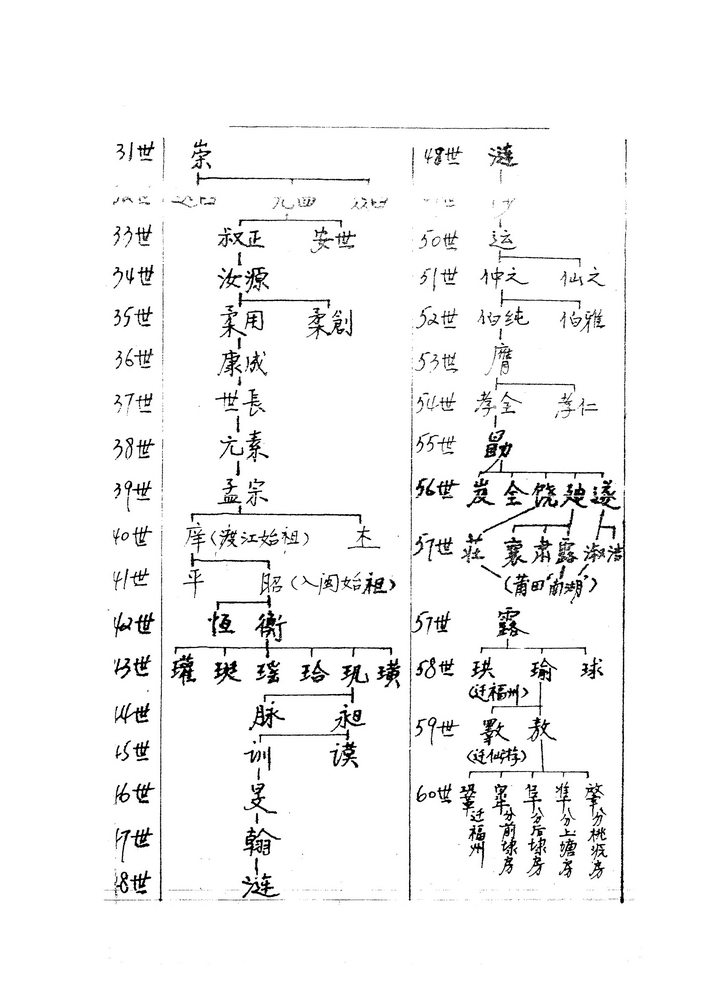 31世 崇
33世 叔正 安世
34世 汝源
35世 柔用 柔創
36世 康成
37世 世長
38世 元素
39世 孟宗
40世 庠(渡江始祖) 杰
41世 平 昭(入闽始祖)
42世 恆 衡
43世 瓘 珽 瑶 珨 玑 璜
14世 脉 昶
15世 训 谟
16世 旻
17世 翰
48世 涟
48世 涟
50世 运
51世 仲之 仙之
52世 伯纯 伯雅
53世 膺
54世 孝全 孝仁
55世 勗
56世 炭 全 饶 廸 遂
57世 莊 襄 肃 露 淑 洁
(莆田"南湖")
57世 露
58世 珙 瑜 球
(迁福州)
59世 斁 敖
(迁仙游)
60世 鞏迁福州 分前埭房 分后埭房 隼分上塘房 肇分桃源房